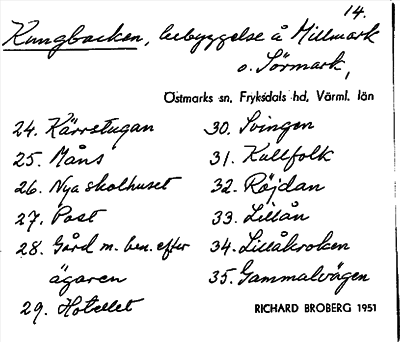 14.
Kungbacken, bebyggelse å Millmark
o. Sörmark,
Östmarks sn, Fryksdals hd, Värml. län
24. Kärrstugan
25. Måns
26. Nya skolhuset
27. Post
28. Gård m. ben. efter
ägaren
29. Hotellet
30. Svingen
31. Kallfolk
32. Röjdan
33. Lillån
34. Lillåkroken
35. Gammalvägen
RICHARD BROBERG 1951